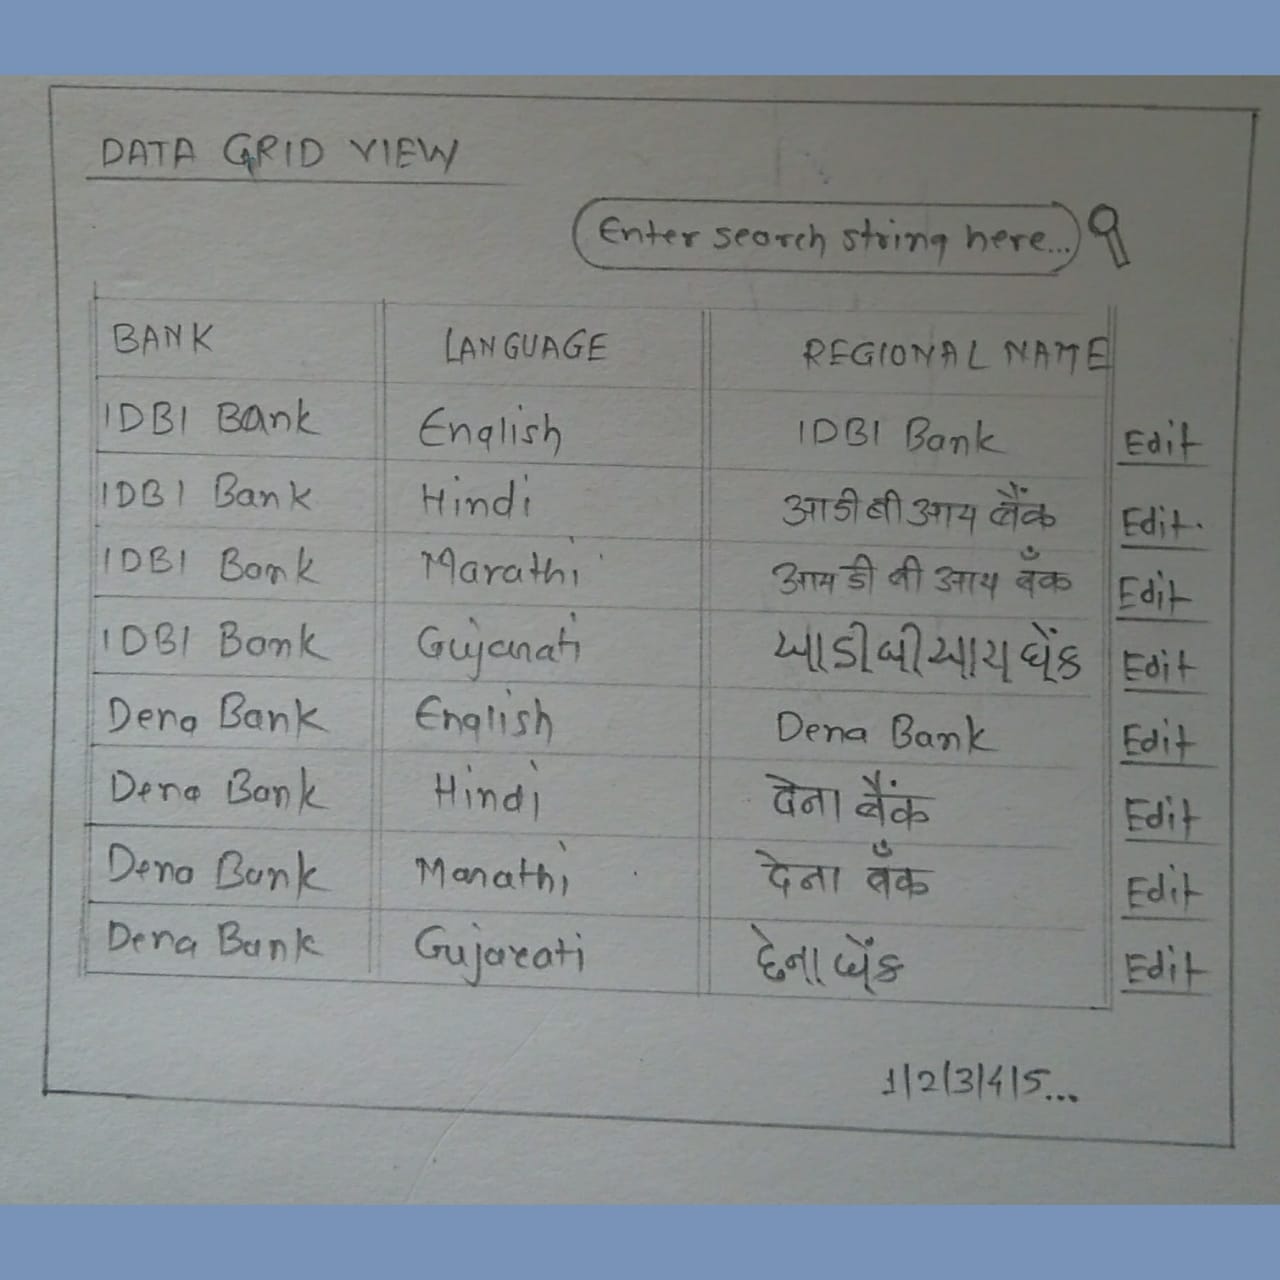 DATA GRID VIEW
Enter search string here...
BANK LANGUAGE REGIONAL NAME
IDBI Bank English IDBI Bank Edit
IDBI Bank Hindi आडीबीआय बैंक Edit.
IDBI Bank Marathi आय डी बी आय बँक Edit
IDBI Bank Gujarati આડીબીઆય બેંક Edit
Dena Bank English Dena Bank Edit
Dena Bank Hindi देना बैंक Edit
Dena Bank Marathi देना बँक Edit
Dena Bank Gujarati દેના બેંક Edit
1/2/3/4/5...